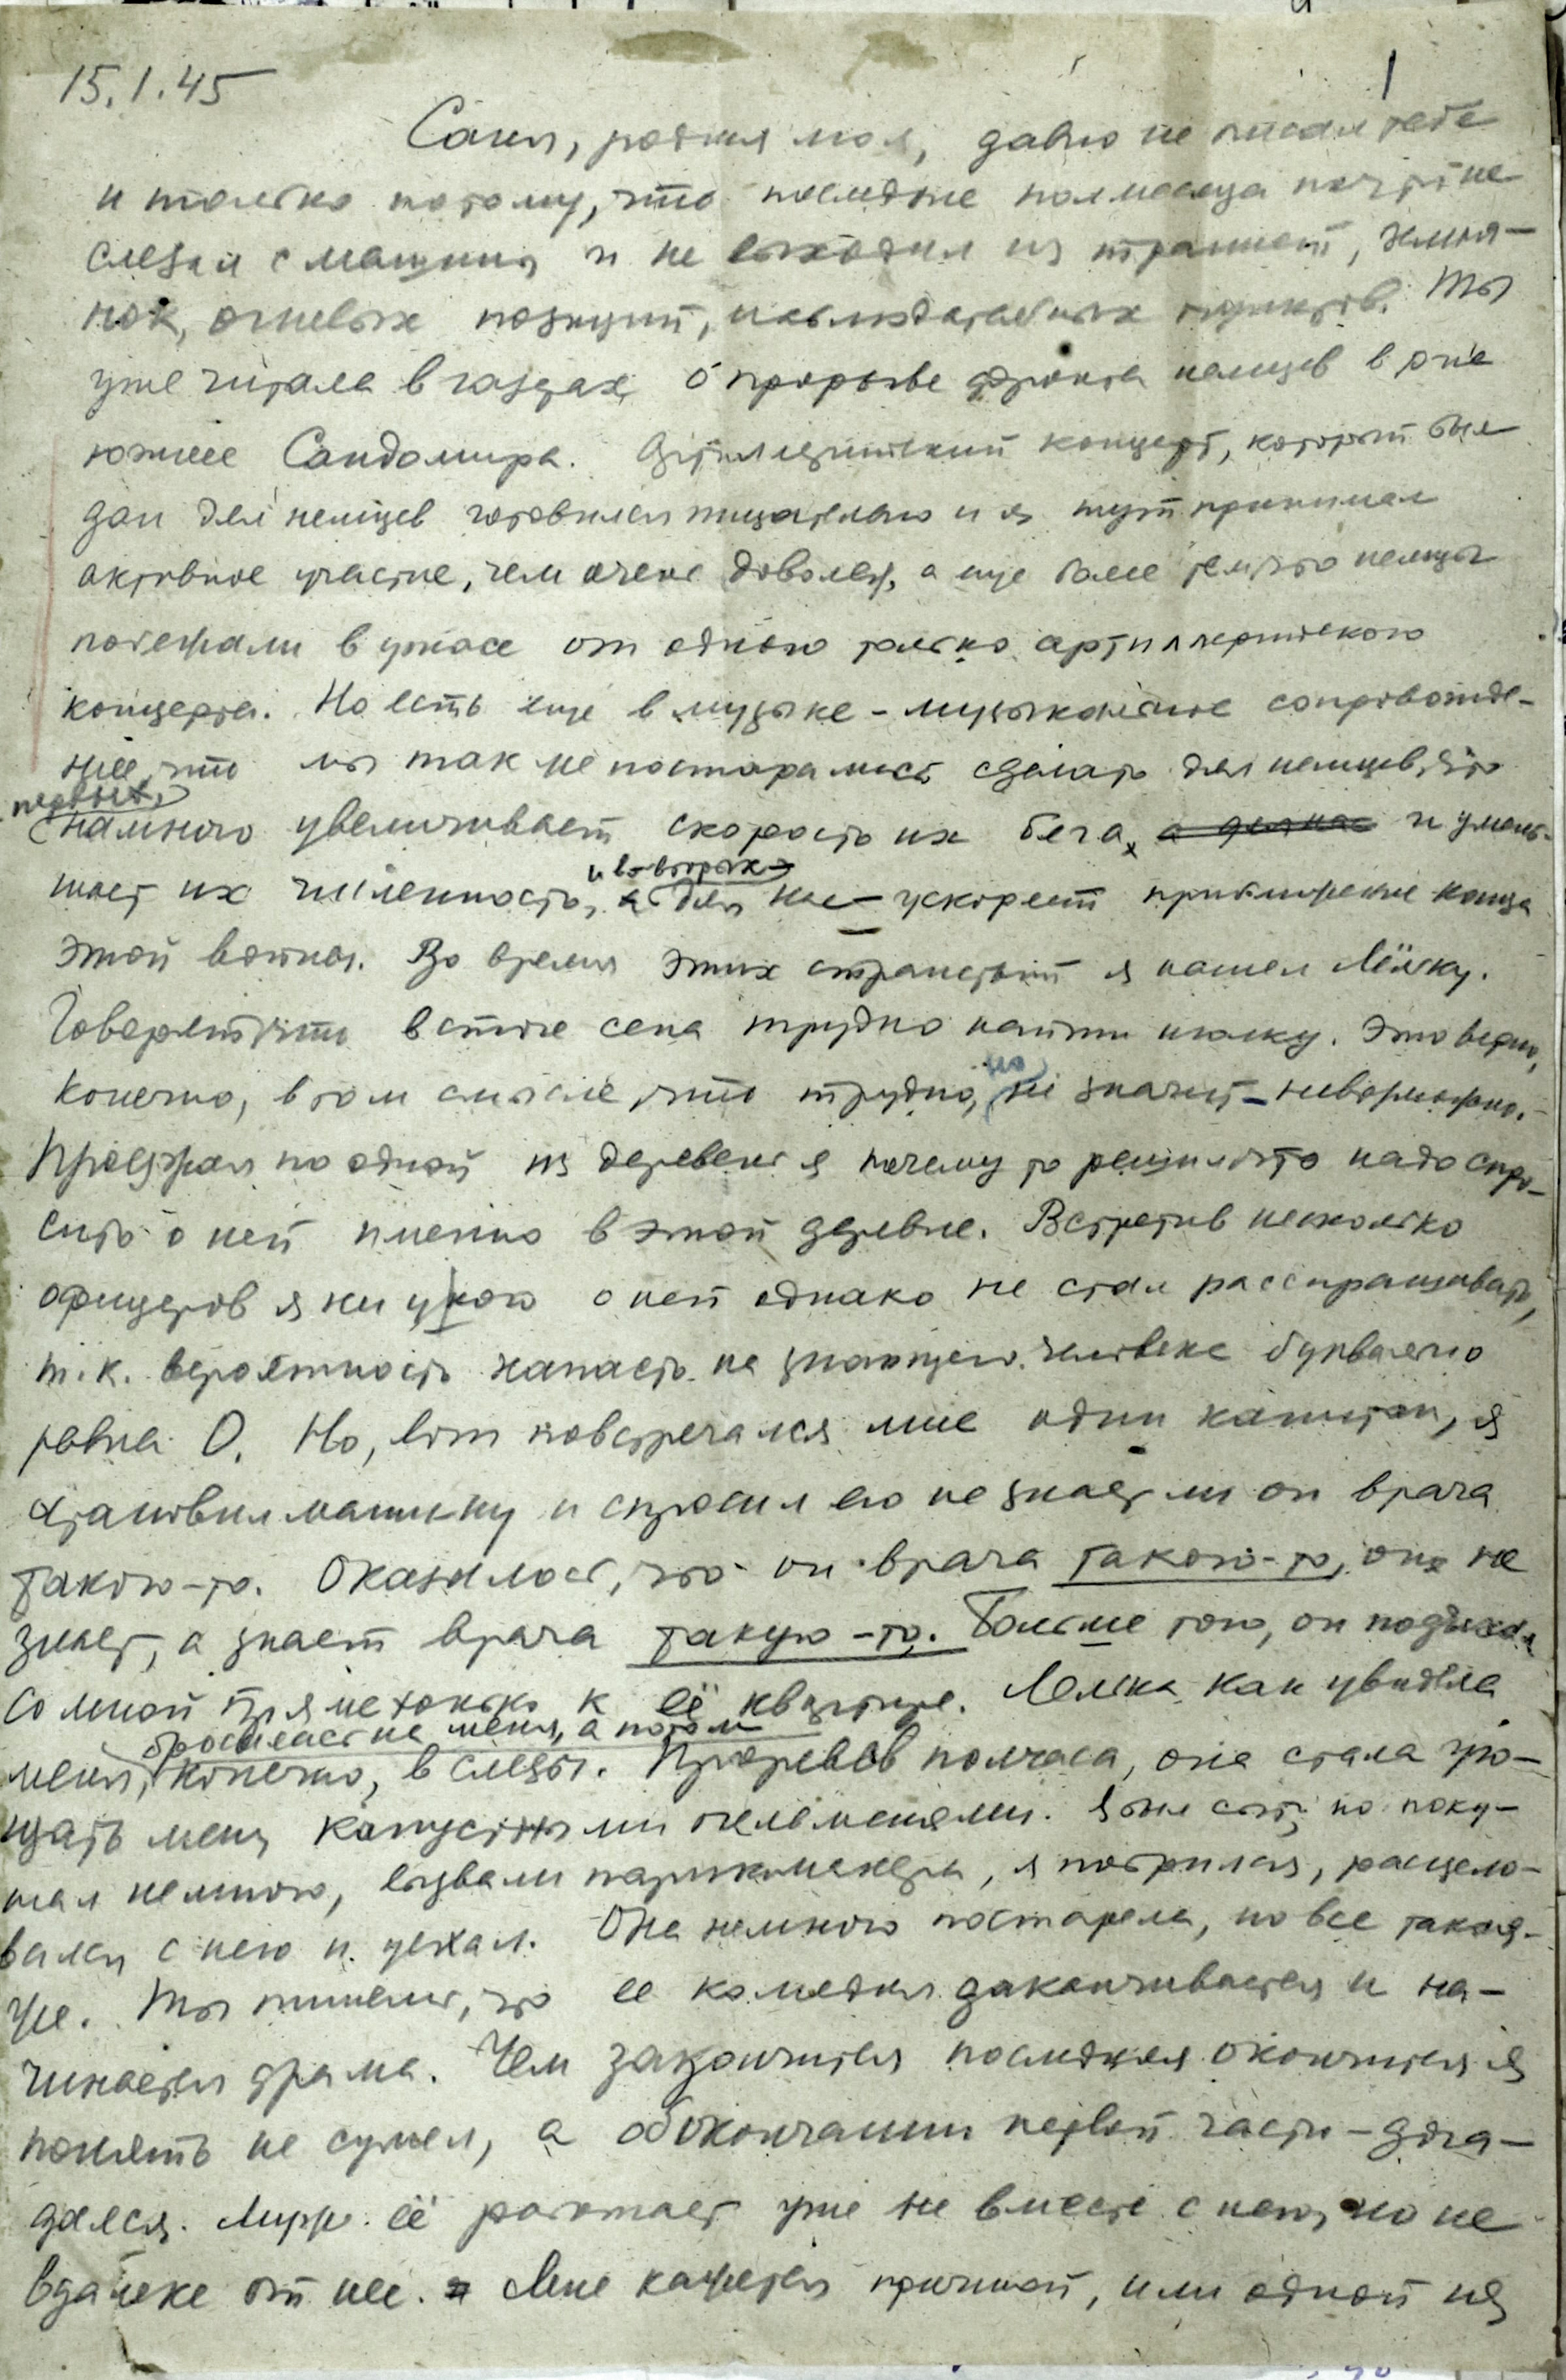 15.1.45
1
Соня, родная моя, давно не писал тебе
и только потому, что последние полмесяца почти не
слезал с машины и не выходил из траншей, землян-
нок, огневых позиций, наблюдательных пунктов. Ты
уже читала в газетах о прорыве фронта немцев в р-не
южнее Сандомира. Артиллерийский концерт, который был
дан для немцев готовился тщательно и я тут принимал
активное участие, чем очень доволен, а еще более тем, что немцы
побежали в ужасе от одного только артиллерийского
концерта. Но есть еще в музыке - музыкальное сопровожде-
ние, что мы так же постарались сделать для немцев, что
во-первых,
намного увеличивает скорость их бега, а для нас и умень-
и во-вторых
шает их численность, а для нас - ускоряет приближение конца
этой войны. Во время этих странствий я нашел Лёльку.
Говорят, что в стоге сена трудно найти иголку. Это верно,
но
конечно, в том смысле, что трудно, не значит - невозможно.
Проезжая по одной из деревень я почему то решил, что надо спро-
сить о ней именно в этой деревне. Встретив несколько
офицеров я ни у кого о ней однако не стал расспрашивать,
т.к. вероятность напасть на знающего человека буквально
равна 0. Но, вот повстречался мне один капитан, я
остановил машину и спросил его не знает ли он врача
такого-то. Оказалось, что он врача такого-то, он не
знает, а знает врача такую-то. Больше того, он подъехал
со мной прямехонько к её квартире. Лелька как увидела
бросилась на меня, а потом
меня, конечно, в слезы. Проревев полчаса, она стала уго-
щать меня капустными пельменями. Я был сыт, но поку-
шал немного, вызвали парикмахера, я побрился, расцело-
вался с нею и уехал. Она немного постарела, но все такая-
же. Ты пишешь, что ее комедия заканчивается и на-
чинается драма. Чем закончится последняя окончится я
понять не сумел, а об окончании первой части - дога-
дался. Мирр. её работает уже не вместе с нею, но не
вдалеке от нее. Мне кажется причиной, или одной из